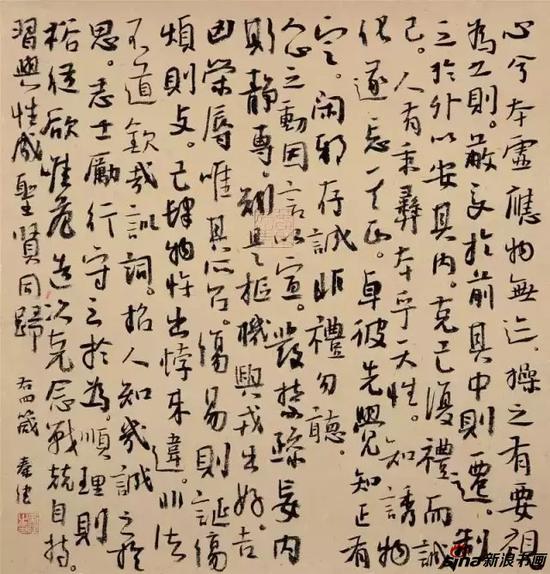 心兮本虛應物無迹。操之有要視
為之則。蔽交於前其中則遷。制
之於外以安其內。克己復禮而誠
已。人有秉彝本乎天性。知誘物
化遂忘其正。卓彼先覺知止有
定。閑邪存誠非禮勿聽。
心之動因言以宣。發禁躁妄內
則靜專。矧是樞機興戎出好。吉
凶榮辱唯其所召。傷易則誕傷
煩則支。己肆物忤出悖來違。非法
不道欽哉訓詞。哲人知幾誠之於
思。志士勵行守之於為。順理則
裕從欲惟危造次克念戰兢自持。
習與性成聖賢同歸
右四箴
sina新浪书画